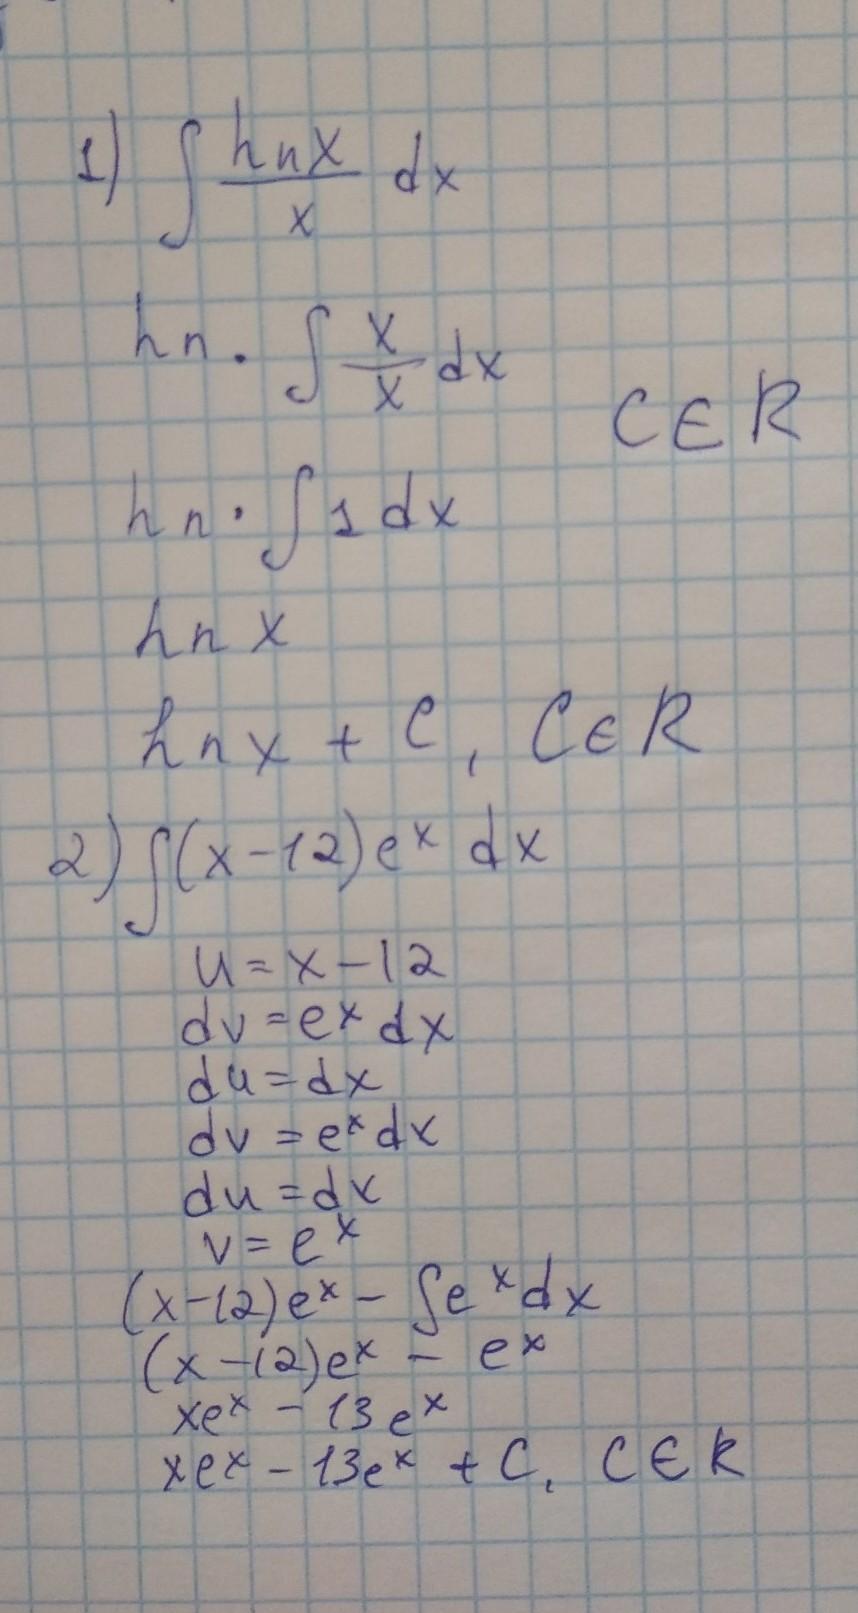 1) ∫ hnx/x dx
hn · ∫ x/x dx
C ∈ R
hn · ∫ 1 dx
hn x
hnx + C, C ∈ R
2) ∫(x-12)eˣ dx
u = x - 12
dv = eˣ dx
du = dx
dv = eˣ dx
du = dx
v = eˣ
(x-12)eˣ - ∫eˣ dx
(x-12)eˣ - eˣ
xeˣ - 13eˣ
xeˣ - 13eˣ + C, C ∈ R